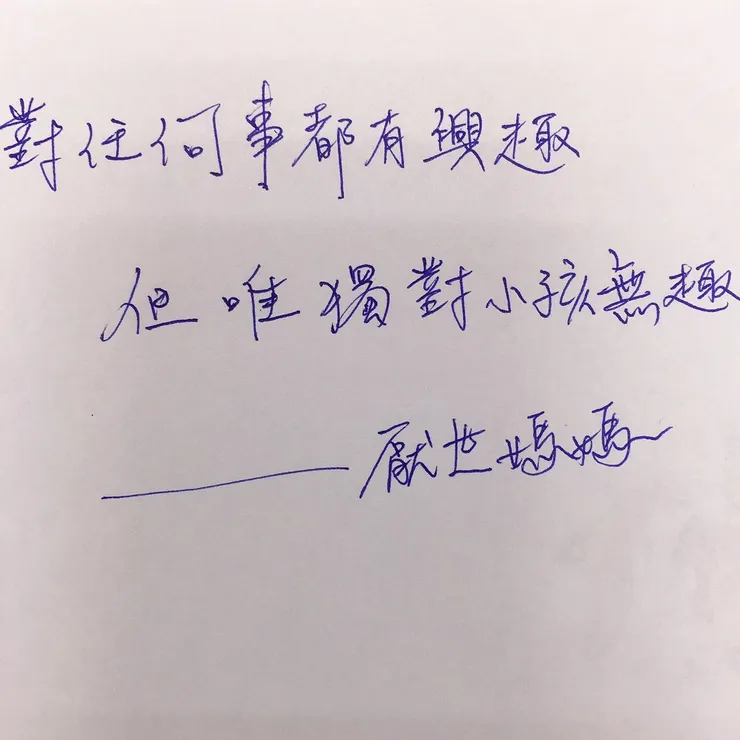 對任何事都有興趣
但唯獨對小孩無趣
——厭世媽媽